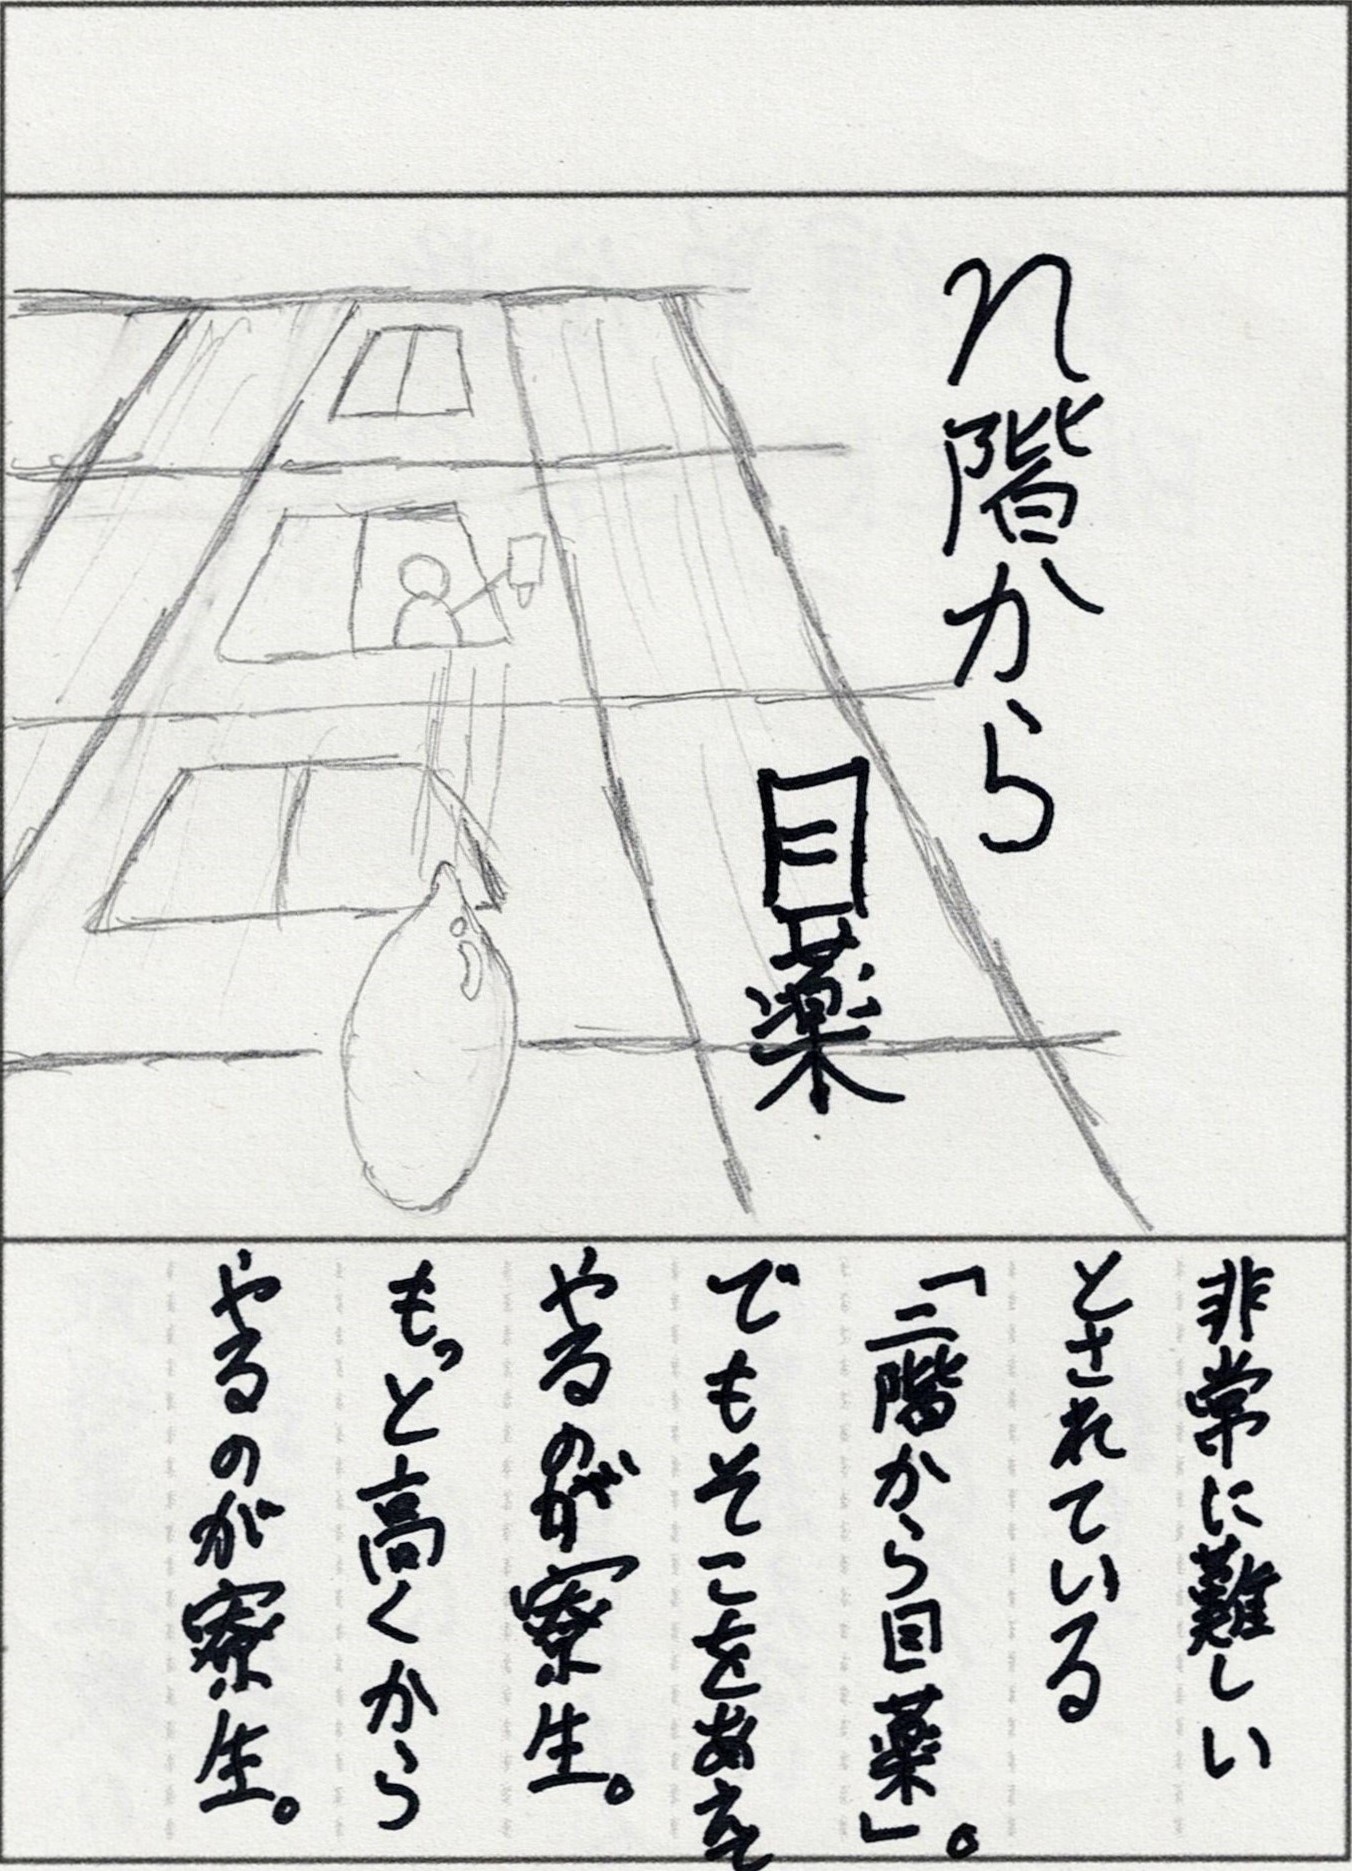 n階から
目薬
非常に難しい
とされている
「二階から目薬」。
でもそこをあえて
やるのが寮生。
もっと高くから
やるのが寮生。